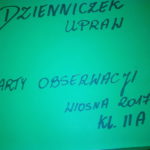 DZIENNICZEK
UPRAW
ARTY OBSERWACJI
WIOSNA 2017
KL. II A